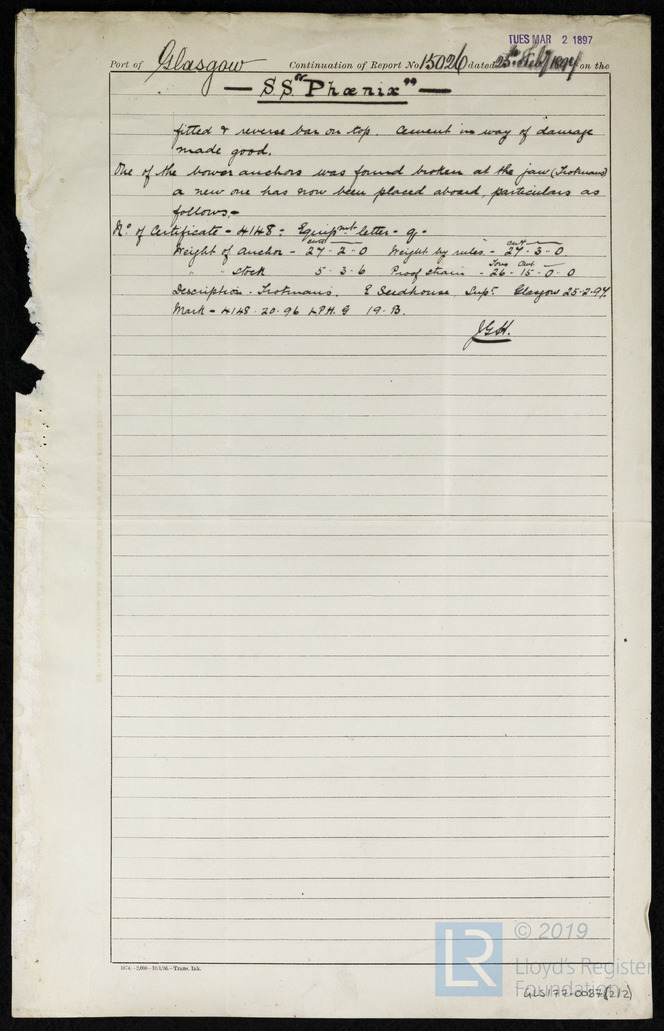 TUES MAR 2 1897
Port of Glasgow Continuation of Report No 15026 dated 25th Feby 1897 on the
— SS "Phœnix" —
fitted & reverse bar on top. Cement in way of damage
made good.
One of the bower anchors was found broken at the jaw (Trotmans)
a new one has now been placed aboard, particulars as
follows -
No. of Certificate - 4148 - Equipmt letter - q -
cwts cwt
Weight of Anchor - 27 - 2 - 0 Weight by rules - 27 - 3 - 0.
Tons Cwt
" " Stock 5 - 3 - 6 Proof strain - 26 - 15 - 0 - 0
Description - Trotmans. Seedhouse, Supt. Glasgow 25-2-97.
Mark - 4148 - 20 - 96 LPH. G 19. B.
J.G.H.
1874.—2,000—10/1/96.—Trans. Ink.
LR
© 2019
Lloyd's Register
Foundation
GLS177-0087(2/2)